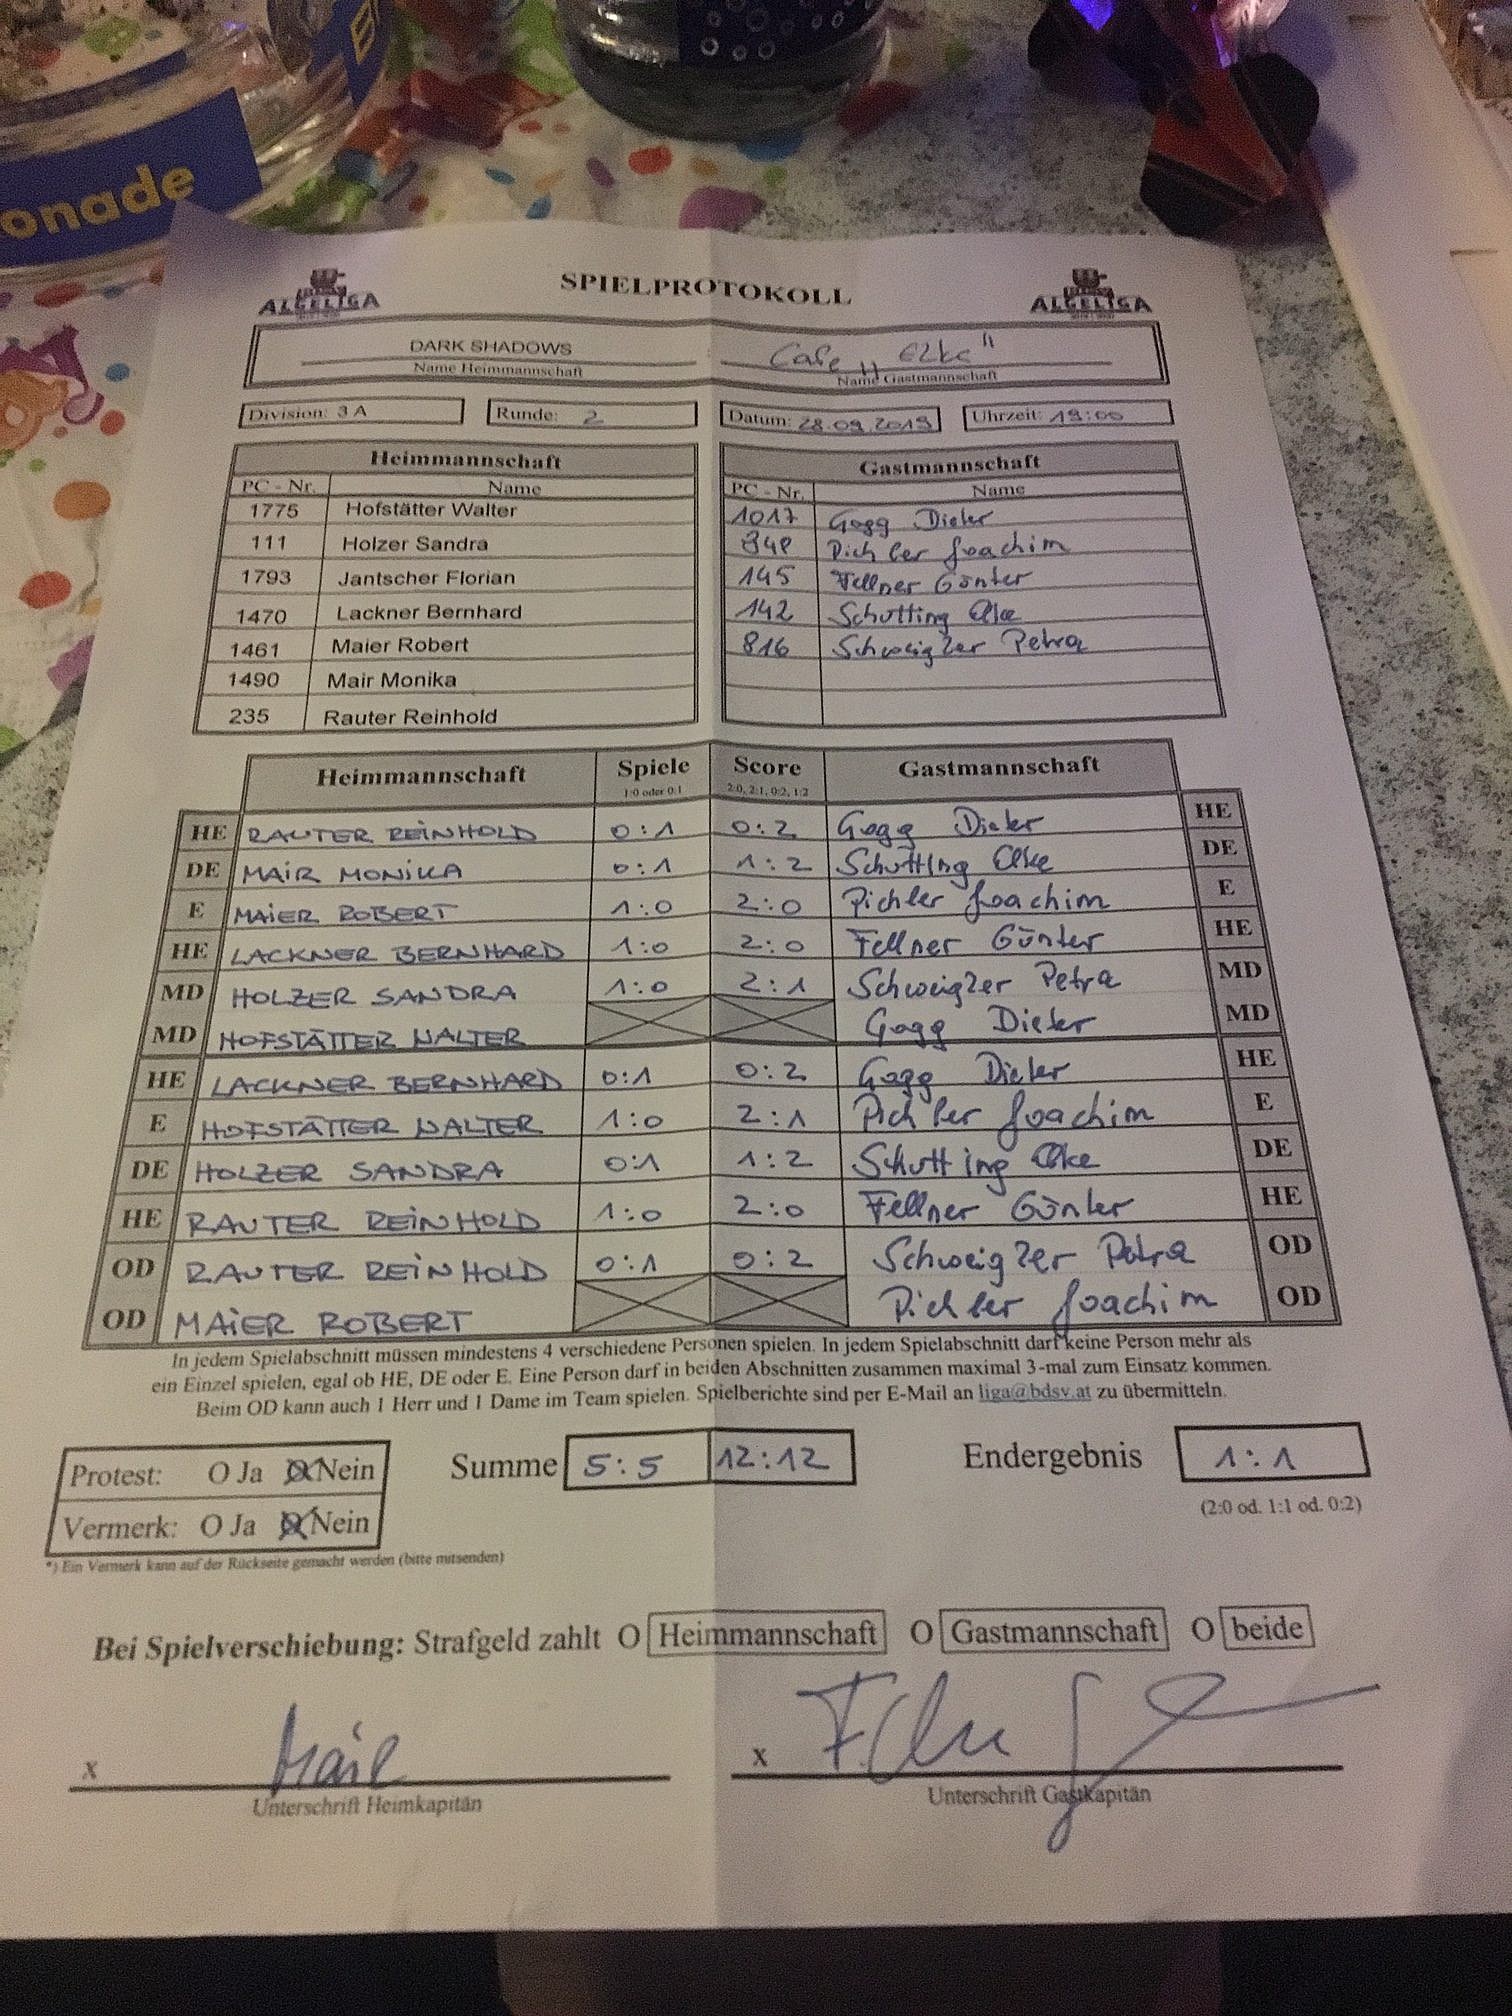 onade
SPIELPROTOKOLL
ALGELIGA ALGELIGA
DARK SHADOWS Cafe „Elke"
Name Heimmannschaft Name Gastmannschaft
Division: 3 A Runde: 2 Datum: 28.09.2019 Uhrzeit: 19:00
Heimmannschaft Gastmannschaft
PC - Nr. Name PC - Nr. Name
1775 Hofstätter Walter 1017 Gogg Dieter
111 Holzer Sandra 848 Pichler Joachim
1793 Jantscher Florian 145 Fellner Günter
1470 Lackner Bernhard 142 Schutting Elke
1461 Maier Robert 816 Schweigler Petra
1490 Mair Monika
235 Rauter Reinhold
Heimmannschaft Spiele Score Gastmannschaft
1:0 oder 0:1 2:0, 2:1, 0:2, 1:2
HE RAUTER REINHOLD 0:1 0:2 Gogg Dieter HE
DE MAIR MONIKA 0:1 1:2 Schutting Elke DE
E MAIER ROBERT 1:0 2:0 Pichler Joachim E
HE LACKNER BERNHARD 1:0 2:0 Fellner Günter HE
MD HOLZER SANDRA 1:0 2:1 Schweigler Petra MD
MD HOFSTÄTTER WALTER Gogg Dieter MD
HE LACKNER BERNHARD 0:1 0:2 Gogg Dieter HE
E HOFSTÄTTER WALTER 1:0 2:1 Pichler Joachim E
DE HOLZER SANDRA 0:1 1:2 Schutting Elke DE
HE RAUTER REINHOLD 1:0 2:0 Fellner Günter HE
OD RAUTER REINHOLD 0:1 0:2 Schweigler Petra OD
OD MAIER ROBERT Pichler Joachim OD
In jedem Spielabschnitt müssen mindestens 4 verschiedene Personen spielen. In jedem Spielabschnitt darf keine Person mehr als
ein Einzel spielen, egal ob HE, DE oder E. Eine Person darf in beiden Abschnitten zusammen maximal 3-mal zum Einsatz kommen.
Beim OD kann auch 1 Herr und 1 Dame im Team spielen. Spielberichte sind per E-Mail an liga@bdsv.at zu übermitteln.
Protest: O Ja O Nein Summe 5:5 12:12 Endergebnis 1:1
Vermerk: O Ja O Nein (2:0 od. 1:1 od. 0:2)
*) Ein Vermerk kann auf der Rückseite gemacht werden (bitte mitsenden)
Bei Spielverschiebung: Strafgeld zahlt O Heimmannschaft O Gastmannschaft O beide
x x
Unterschrift Heimkapitän Unterschrift Gastkapitän